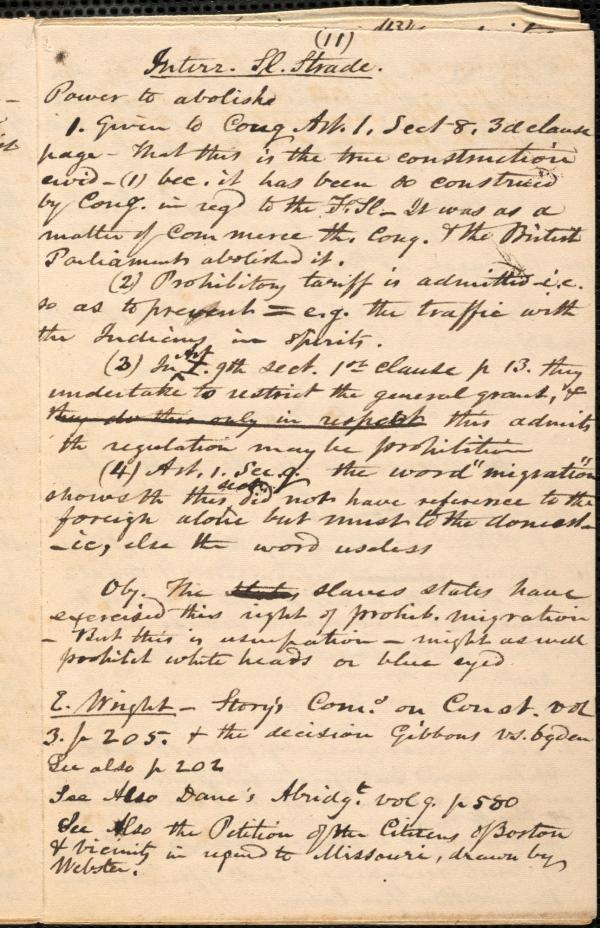 (11)
Interr. Sl. Strade.
Power to abolish
1. Given to Cong Art. 1. Sect 8. 3d clause
page - That this is the true construction
evid - (1) bec. it has been so construed
by Cong. in regd to the F. Sl - It was as a
matter of Commerce th. Cong. & the British
Parliaments abolished it.
(2) Prohibitory tariff is admitted i.e.
so as to prevent = e.g. the traffic with
the Indians in spirits.
(3) In Art I. 9th sect. 1st clause p 13. they
undertake to restrict the general grant, &
they do this only in respect this admits
th regulation may be prohibition
(4) Art. 1. Sec 9. the word "migration"
shows th this sect. did not have reference to the
foreign alone but must to the domest-
-ic, else the word useless
Obj. The slaves states have
exercised this right of prohib. migration
- But this is usurpation - might as well
prohibit white heads or blue eyed
E. Wright - Story's Com.s on Const. vol
3. p 205. & the decision Gibbons vs. Ogden
See also p 202
See Also Dane's Abridgt. vol 9. p 500
See Also the Petition of the Citizens of Boston
& vicinity in regard to Missouri, drawn by
Webster.